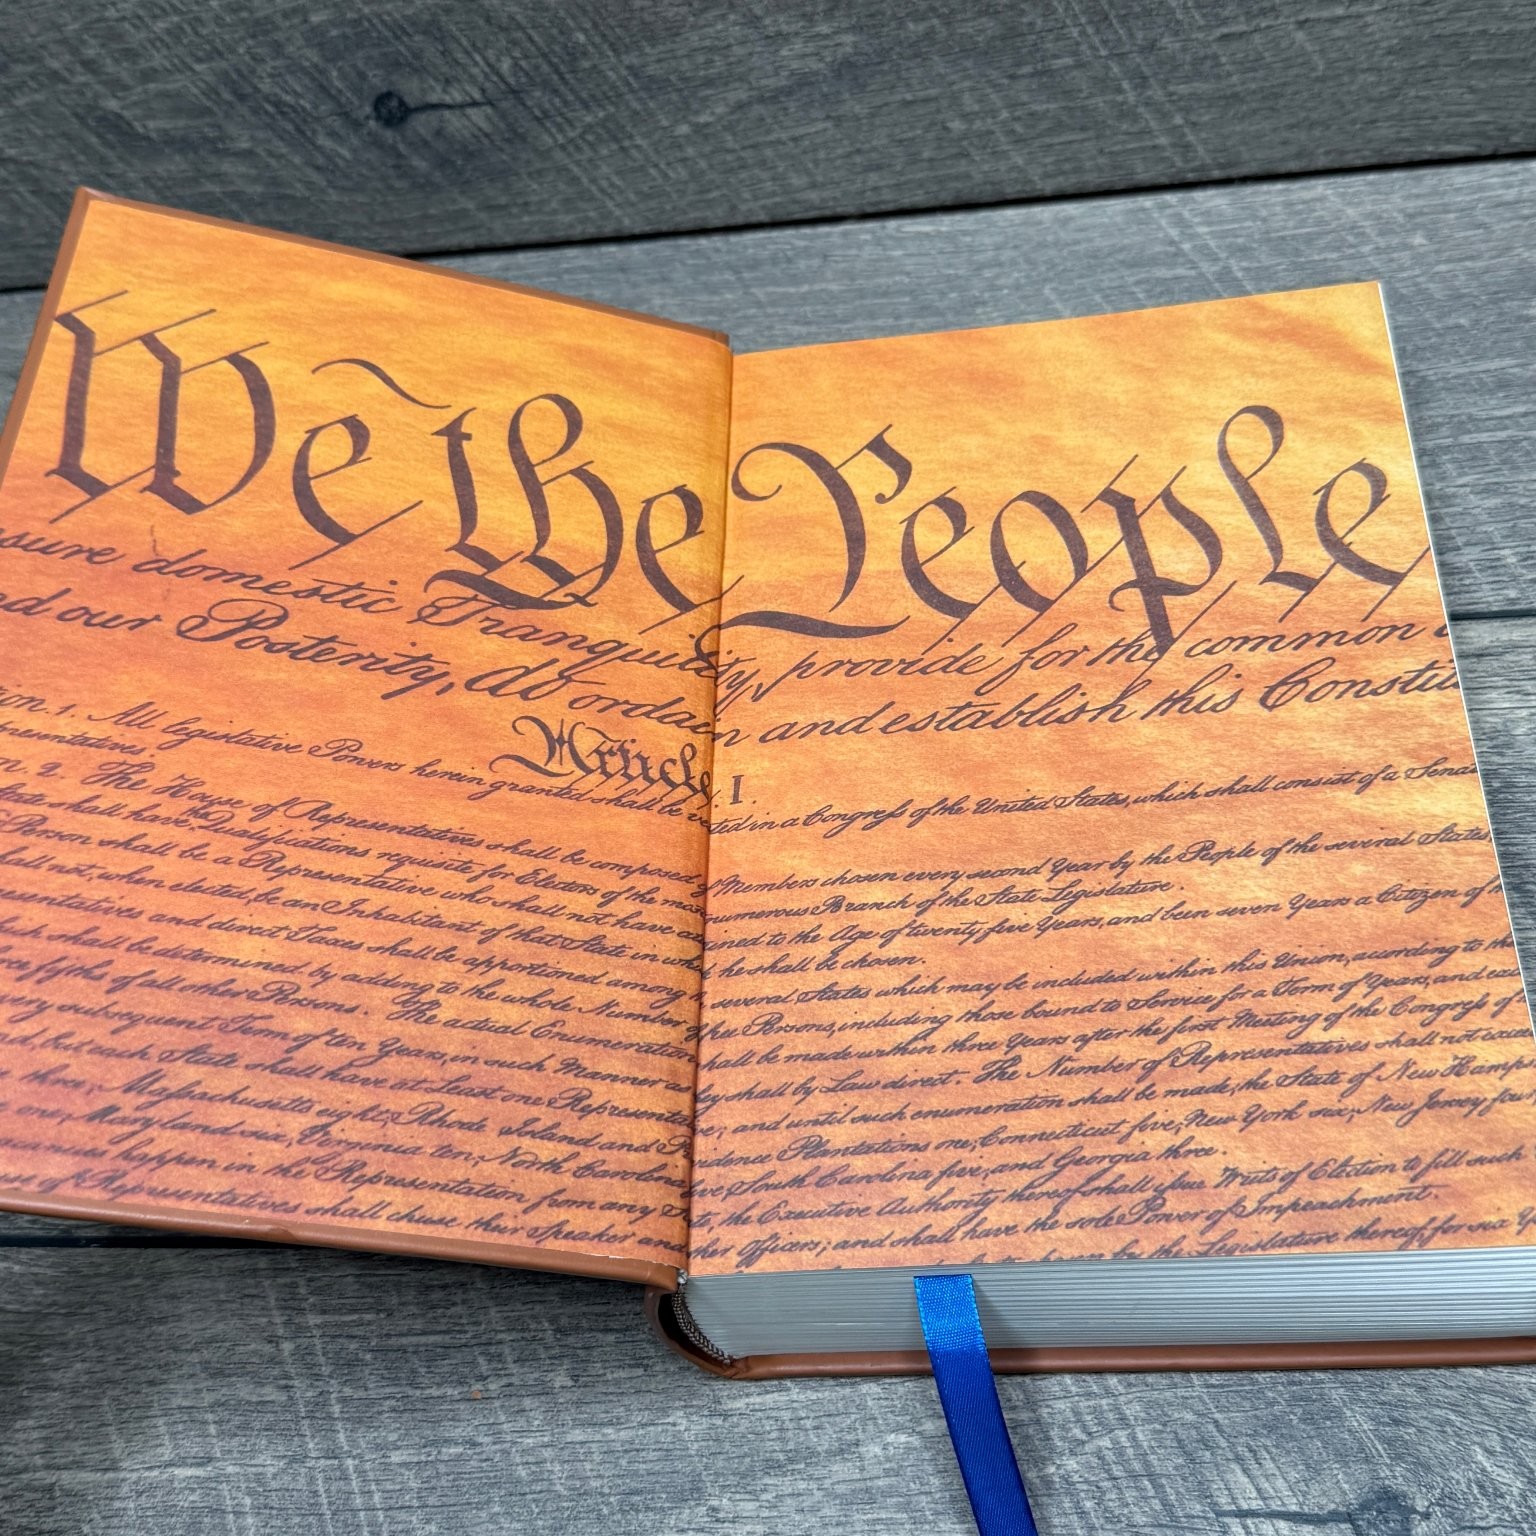 We the People
sure domestic Tranquility, provide for the common
our Posterity, do ordain and establish this Constitu
Article. I.
ion. 1. All legislative Powers herein granted shall be vested in a Congress of the United States, which shall consist of a Sena
presentatives.
n. 2. The House of Representatives shall be composed of Members chosen every second Year by the People of the several States,
State shall have the Qualifications requisite for Electors of the most numerous Branch of the State Legislature.
Person shall be a Representative who shall not have attained to the Age of twenty five Years, and been seven Years a Citizen of
hall not, when elected, be an Inhabitant of that State in which he shall be chosen.
esentatives and direct Taxes shall be apportioned among the several States which may be included within this Union, according to
hich shall be determined by adding to the whole Number of free Persons, including those bound to Service for a Term of Years, and exc
ree fifths of all other Persons. The actual Enumeration shall be made within three Years after the first Meeting of the Congress of
very subsequent Term of ten Years, in such Manner as they shall by Law direct. The Number of Representatives shall not excee
d, but each State shall have at Least one Representative; and until such enumeration shall be made, the State of New Hamps
three, Massachusetts eight, Rhode Island and Providence Plantations one, Connecticut five, New York six, New Jersey four
one, Maryland six, Virginia ten, North Carolina five, South Carolina five, and Georgia three.
vacancies happen in the Representation from any State, the Executive Authority thereof shall issue Writs of Election to fill such
use of Representatives shall chuse their Speaker and other Officers; and shall have the sole Power of Impeachment.
by the Legislature thereof, for six Y